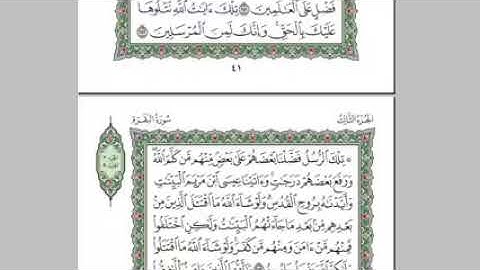 فَضْلٍ عَلَى ٱلْعَٰلَمِينَ ۝ تِلْكَ ءَايَٰتُ ٱللَّهِ نَتْلُوهَا
عَلَيْكَ بِٱلْحَقِّ وَإِنَّكَ لَمِنَ ٱلْمُرْسَلِينَ ۝
٤١
الجزء الثالث
سورة البقرة
۞ تِلْكَ ٱلرُّسُلُ فَضَّلْنَا بَعْضَهُمْ عَلَىٰ بَعْضٍ مِّنْهُم مَّن كَلَّمَ ٱللَّهُ
وَرَفَعَ بَعْضَهُمْ دَرَجَٰتٍ وَءَاتَيْنَا عِيسَى ٱبْنَ مَرْيَمَ ٱلْبَيِّنَٰتِ
وَأَيَّدْنَٰهُ بِرُوحِ ٱلْقُدُسِ وَلَوْ شَآءَ ٱللَّهُ مَا ٱقْتَتَلَ ٱلَّذِينَ مِنۢ
بَعْدِهِم مِّنۢ بَعْدِ مَا جَآءَتْهُمُ ٱلْبَيِّنَٰتُ وَلَٰكِنِ ٱخْتَلَفُوا۟
فَمِنْهُم مَّنْ ءَامَنَ وَمِنْهُم مَّن كَفَرَ وَلَوْ شَآءَ ٱللَّهُ مَا ٱقْتَتَلُوا۟